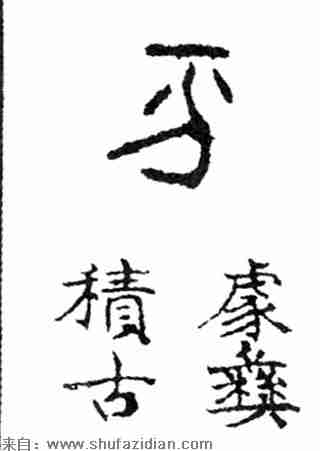 豦彝
積古
来自：www.shufazidian.com